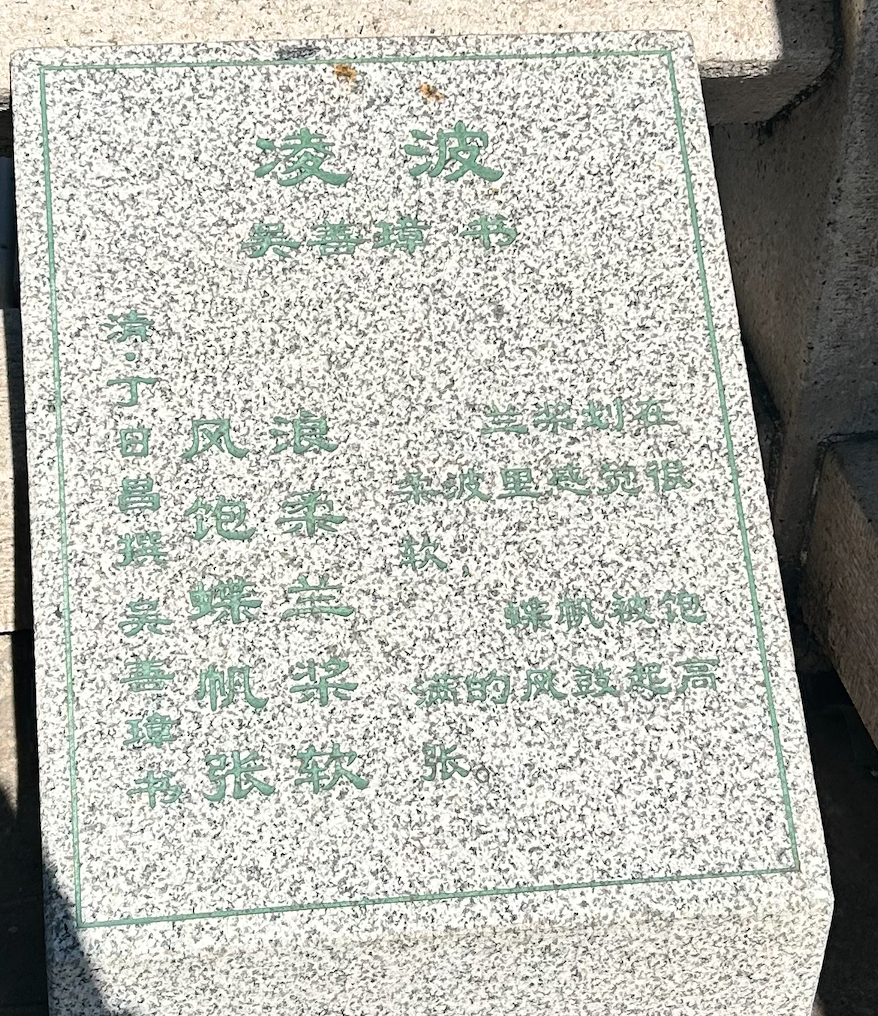 凌波
吴善璋 书
兰桨划在
柔波里感觉很
软，
蝶帆被饱
满的风鼓起高
张。
浪柔兰桨软
风饱蝶帆张
清·丁日昌撰 吴善璋书